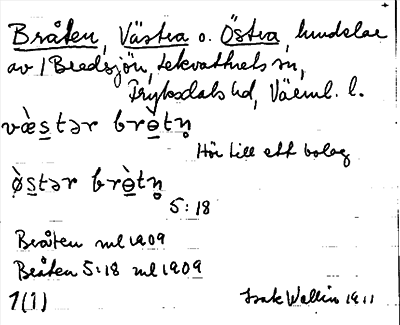 Bråten, Västra o. Östra, lundelar
av 1 Bredsjön, Lekvattnets sn,
Fryksdals hd, Värml. l.
væ̀stər brɵ̀tn̥
Hör till ett bolag
ø̀stər brɵ̀tn̥
5:18
Bråten ml 1909
Bråten 5:18 ml 1909
1(1)
Isak Wallin 1911